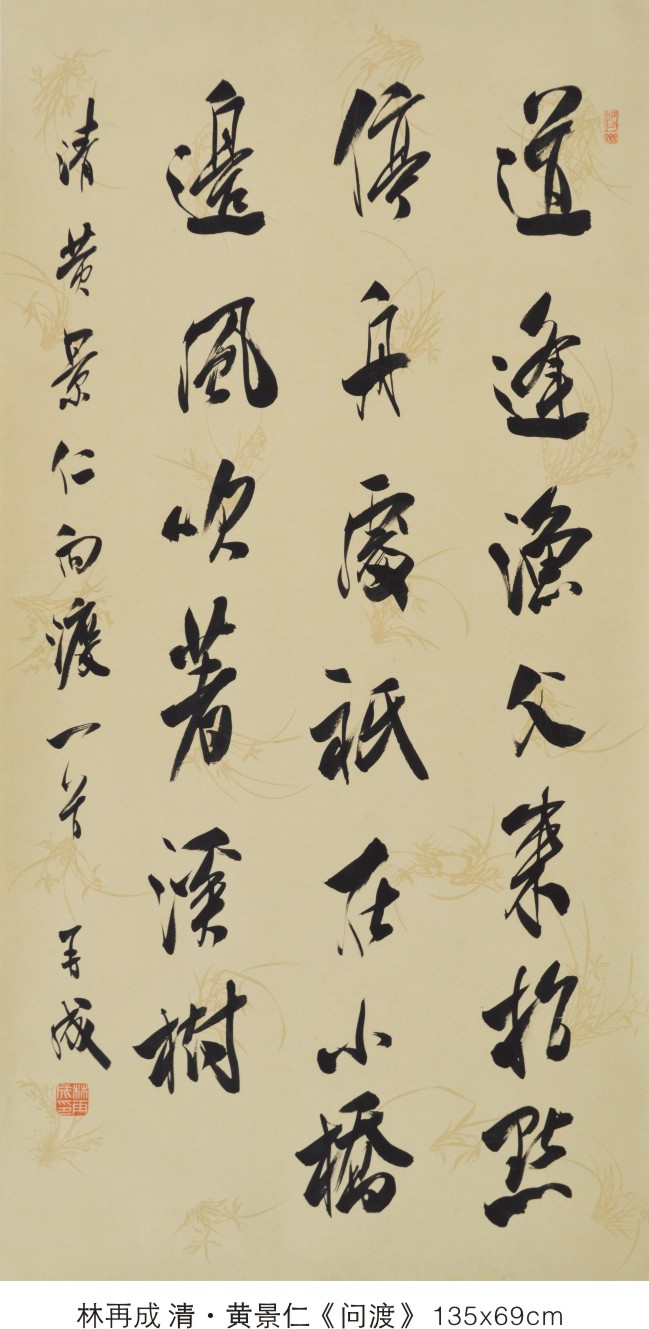 道逢漁父來指點
停舟處祇在小橋
邊風吹著溪樹
清黄景仁問渡一首 再成
林再成印
林再成 清·黄景仁《问渡》 135x69cm